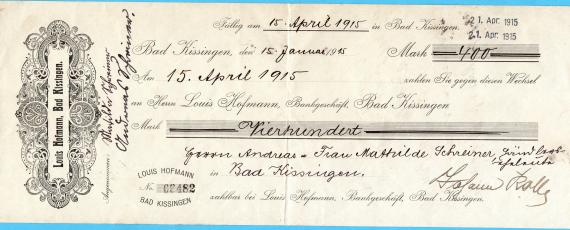 Fällig am 15. April 1915 in Bad Kissingen.
21. Apr. 1915
21. Apr. 1915
Bad Kissingen, den 15. Januar 1915 Mark 400
Am 15. April 1915 zahlen Sie gegen diesen Wechsel
an Herrn Louis Hofmann, Bankgeschäft, Bad Kissingen
Mark Vierhundert
Herrn Andreas u Frau Mathilde Schreiner
in Bad Kissingen.
zahlbar bei Louis Hofmann, Bankgeschäft, Bad Kissingen.
LOUIS HOFMANN
No. 62482
BAD KISSINGEN
Louis Hofmann, Bad Kissingen.
Angenommen: Mathilde Schreiner
Andreas Schreiner